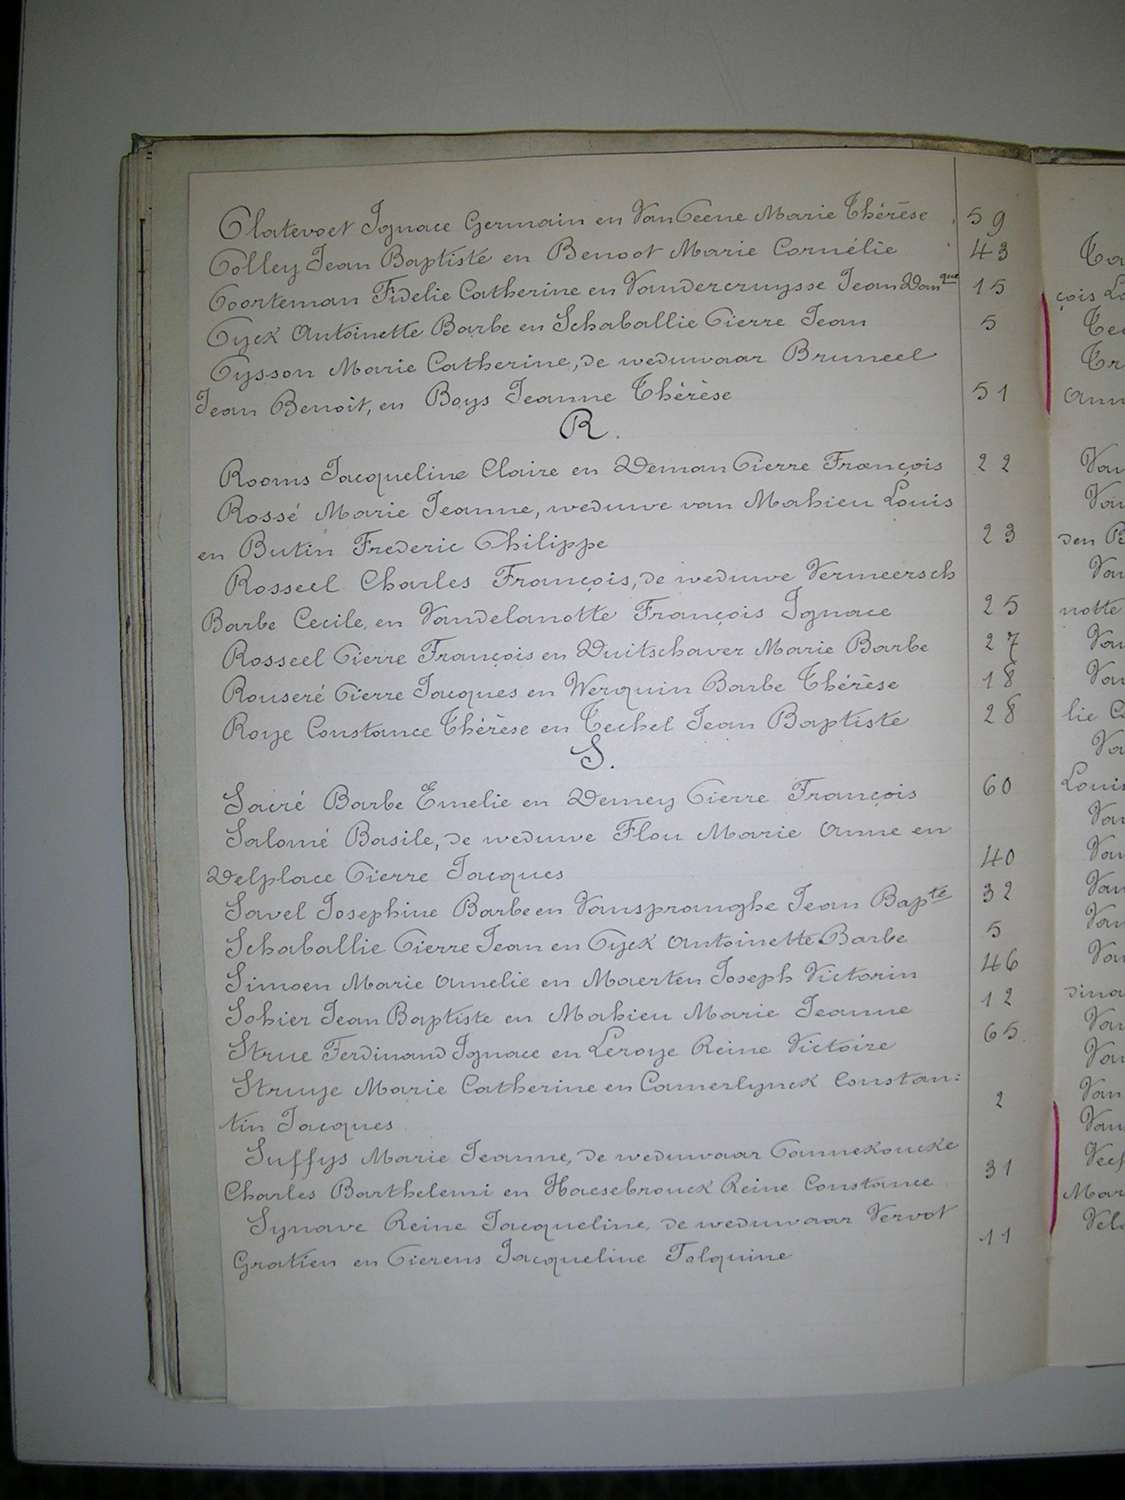 Platevoet Ignace Germain en Van Peene Marie Thérèse 59
Polley Jean Baptiste en Benoot Marie Cornélie 43
Poorteman Fidelie Catherine en Vandercruysse Jean Domque 15
Pyck Antoinette Barbe en Schaballie Pierre Jean 5
Pysson Marie Catherine, de weduwaar Bruneel
Jean Benoit, en Boys Jeanne Thérèse 51
R.
Rooms Jacqueline Claire en Deman Pierre François 22
Rossé Marie Jeanne, weduwe van Mahieu Louis
en Butin Frederic Philippe 23
Rosseel Charles François, de weduwe Vermeersch
Barbe Cecile, en Vandelanotte François Ignace 25
Rosseel Pierre François en Duitschaver Marie Barbe 27
Rouseré Pierre Jacques en Werquin Barbe Thérèse 18
Roye Constance Thérèse en Techel Jean Baptiste 28
S.
Sacré Barbe Emelie en Demey Pierre François 60
Salomé Basile, de weduwe Flou Marie Anne en
Delplace Pierre Jacques 40
Savel Josephine Barbe en Vanspranghe Jean Bapte 32
Schaballie Pierre Jean en Pyck Antoinette Barbe 5
Simoen Marie Amelie en Maerten Joseph Victorin 46
Sohier Jean Baptiste en Mahieu Marie Jeanne 12
Strue Ferdinand Ignace en Leroye Reine Victoire 65
Struye Marie Catherine en Camerlynck Constan:
tin Jacques 2
Suffys Marie Jeanne, de weduwaar Pannekoucke
Charles Barthelemi en Haesebrouck Reine Constance 31
Synave Reine Jacqueline, de weduwaar Vervot
Gratien en Pierens Jacqueline Folquine 11